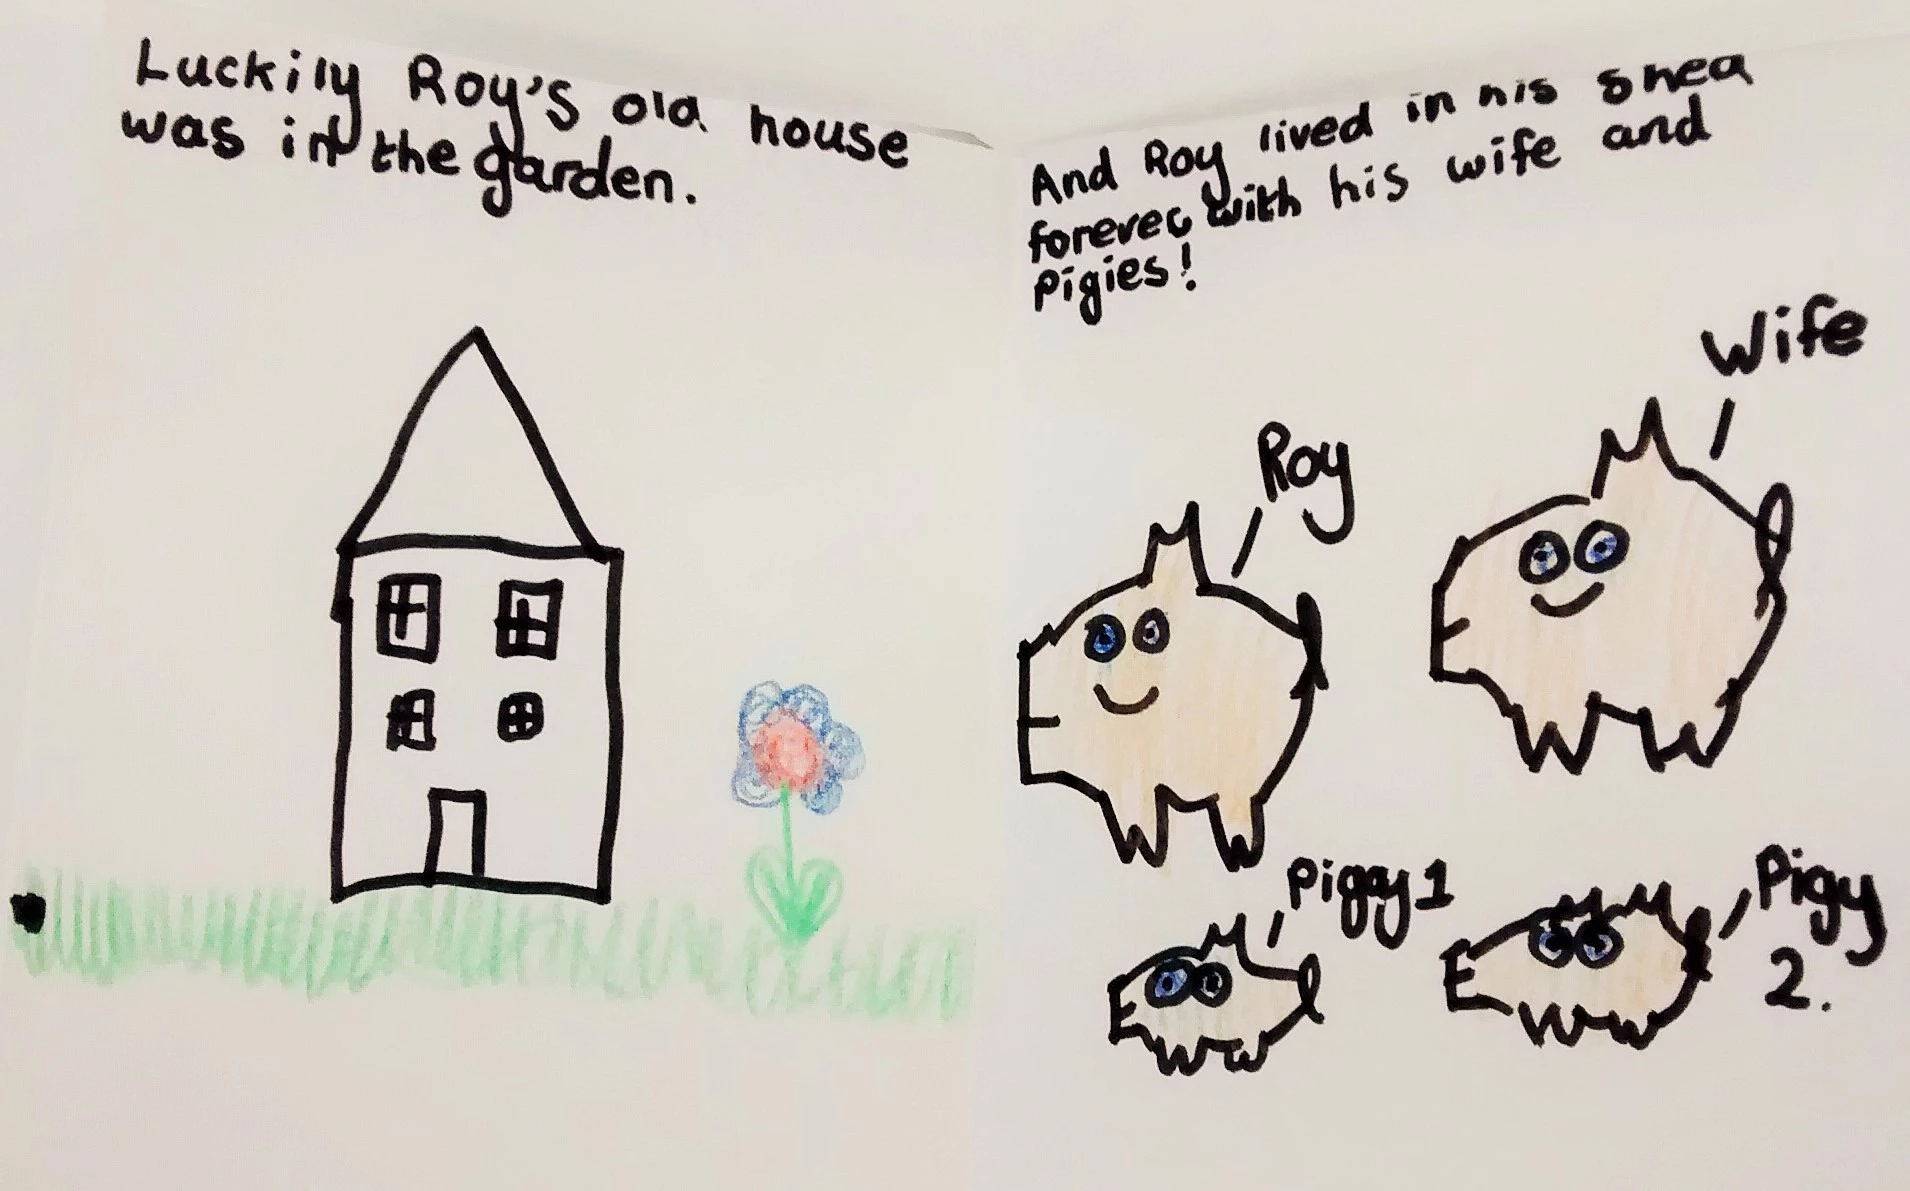 Luckily Roy's old house
was in the garden.
And Roy lived in his shed
forever with his wife and
Pigies!
Wife
Roy
Piggy 1
Pigy
2.